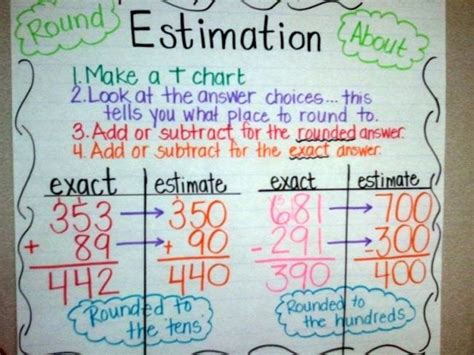 Round
Estimation
About
1. Make a T chart
2. Look at the answer choices... this
tells you what place to round to.
3. Add or subtract for the rounded answer.
4. Add or subtract for the exact answer.
exact estimate exact estimate
353 → 350 681 → 700
+ 89 → + 90 - 291 → - 300
442 440 390 400
Rounded to
the tens.
Rounded to
the hundreds.